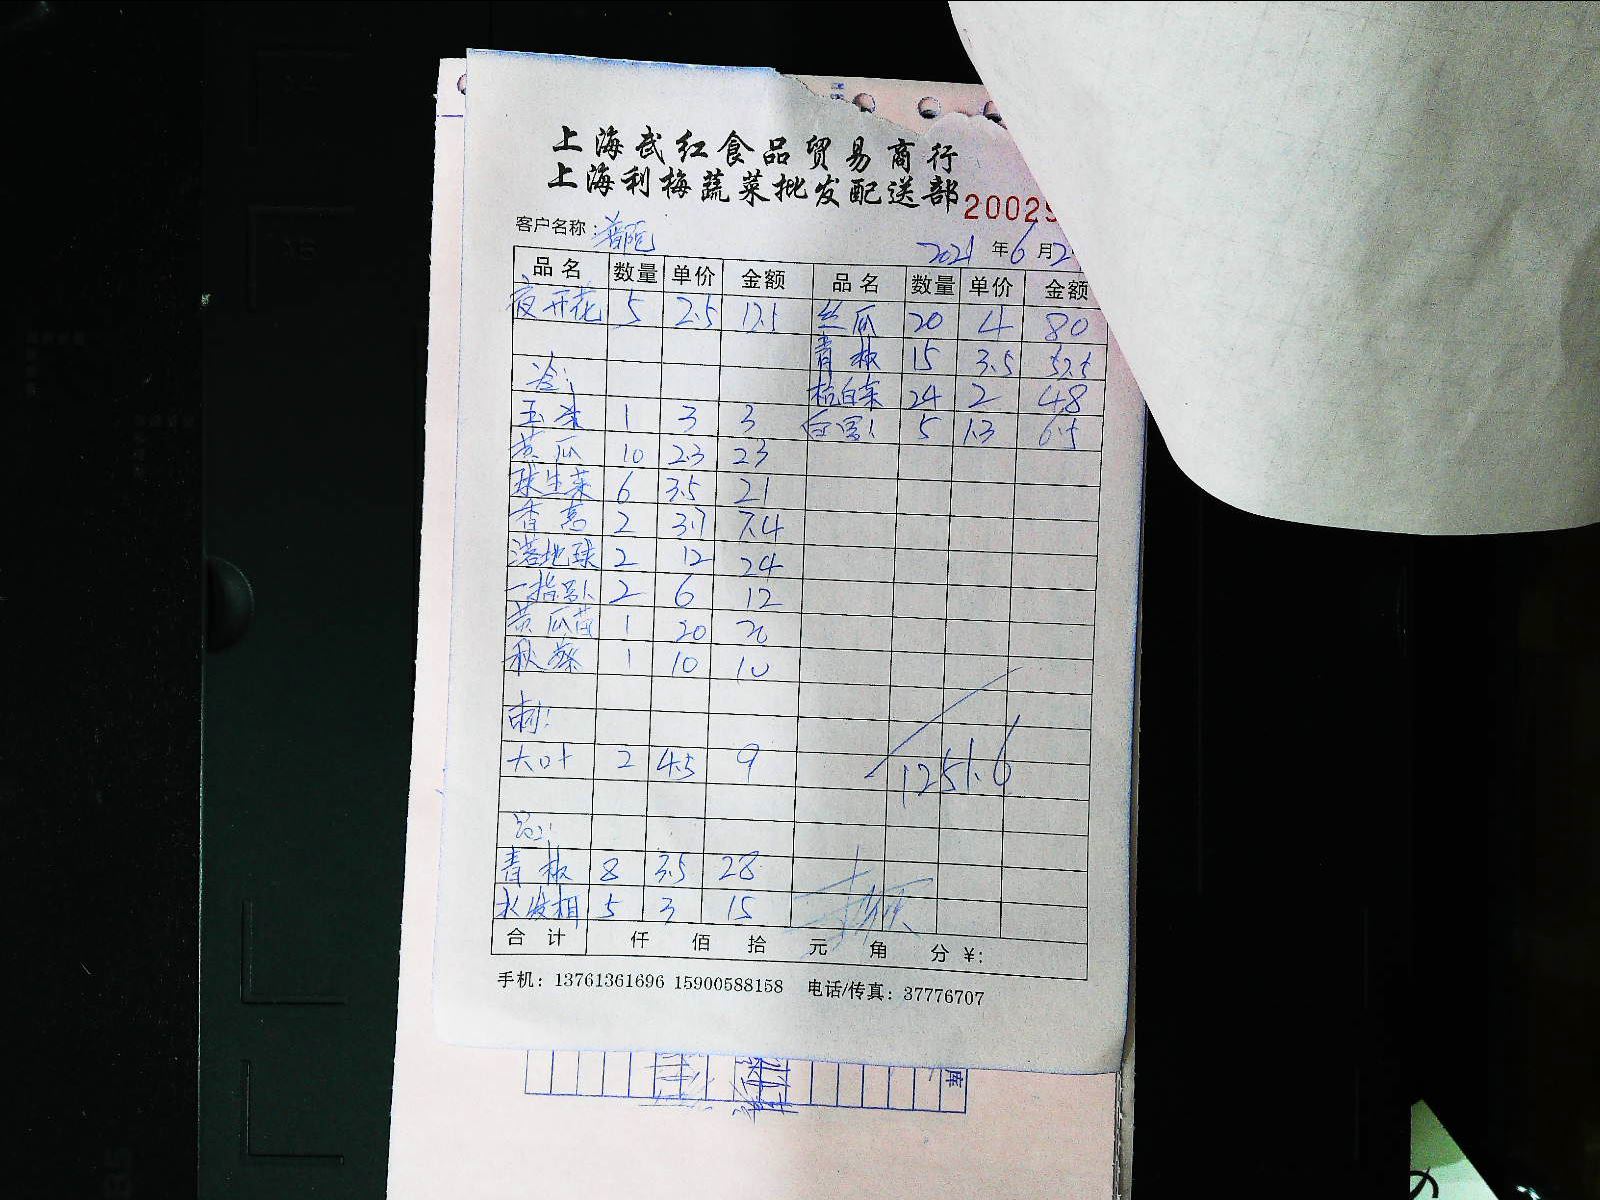 上海武红食品贸易商行
上海利梅蔬菜批发配送部 20029
客户名称: 普陀
2021 年 6 月 2
品名 数量 单价 金额 品名 数量 单价 金额
夜开花 5 2.5 12.5 丝瓜 20 4 80
青椒 15 3.5 52.5
冷: 杭白菜 24 2 48
玉米 1 3 3 5 1.3 6.5
黄瓜 10 2.3 23
球生菜 6 3.5 21
香葱 2 3.7 7.4
2 12 24
2 6 12
黄瓜苗 1 20 20
秋葵 1 10 10
大叶 2 4.5 9
1251.6
青椒 8 3.5 28
水发 5 3 15
合计 仟 佰 拾 元 角 分 ¥:
手机: 13761361696 15900588158 电话/传真: 37776707
库